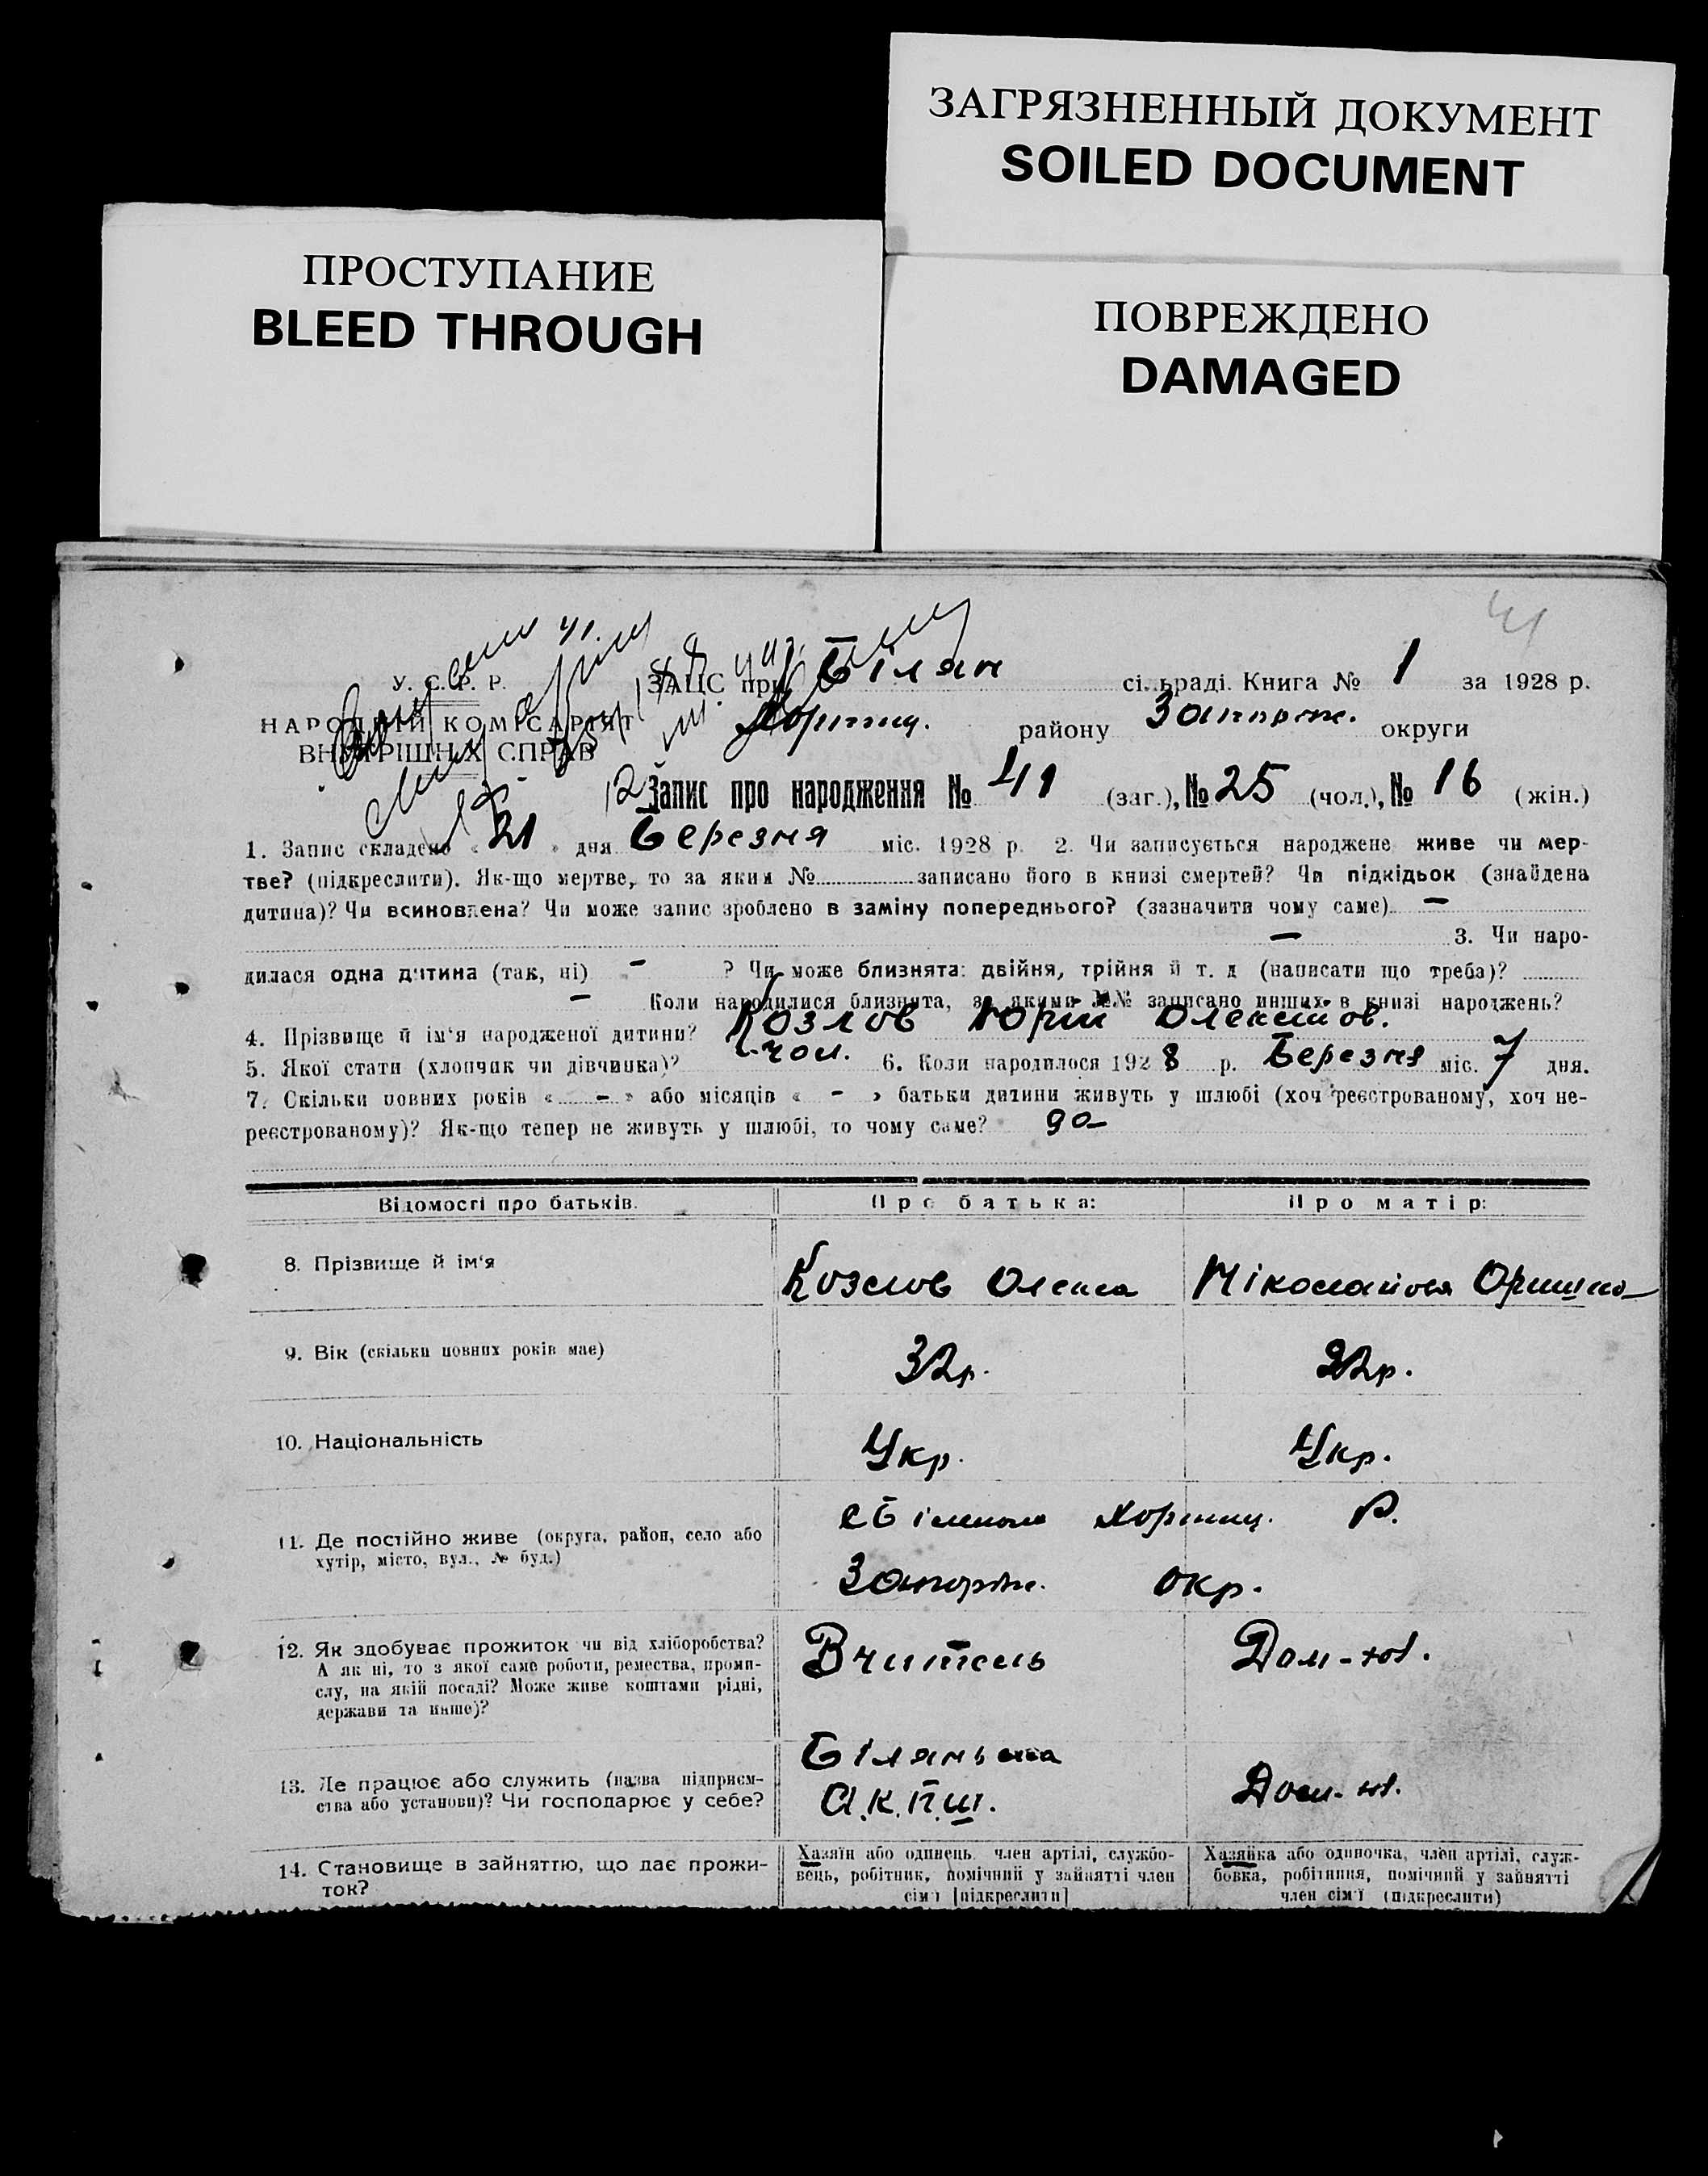 ЗАГРЯЗНЕННЫЙ ДОКУМЕНТ
SOILED DOCUMENT
ПРОСТУПАНИЕ
BLEED THROUGH
ПОВРЕЖДЕНО
DAMAGED
41
У. С. Р. Р.
НАРОДНІЙ КОМІСАРІЯТ
ВНУТРІШНІХ СПРАВ
ЗАЦС при Білян сільраді. Книга № 1 за 1928 р.
Хортиц. району Запоріж. округи
Запис про народження № 41 (заг.), № 25 (чол.), № 16 (жін.)
1. Запис складено « 21 » дня Березня міс. 1928 р. 2. Чи записується народжене живе чи мер-
тве? (підкреслити). Як-що мертве, то за яким № записано його в книзі смертей? Чи підкідьок (знайдена
дитина)? Чи всиновлена? Чи може запис зроблено в заміну попереднього? (зазначити чому саме) —
— 3. Чи наро-
дилася одна дитина (так, ні) - ? Чи може близнята: двійня, трійня й т. д (написати що треба)?
— Коли народилися близнята, за якими №№ записано инших в книзі народжень?
4. Прізвище й ім'я народженої дитини? Козлов Юрій
5. Якої стати (хлопчик чи дівчинка)? чол. 6. Коли народилося 1928 р. Березня міс. 7 дня.
7. Скільки повних років « - » або місяців « - » батьки дитини живуть у шлюбі (хоч реєстрованому, хоч не-
реєстрованому)? Як-що тепер не живуть у шлюбі, то чому саме?
Відомості про батьків. Про батька: Про матір:
8. Прізвище й ім'я Козлов Олекса Міколайова
9. Вік (скільки повних років має) 32р. 22р.
10. Національність Укр. Укр.
11. Де постійно живе (округа, район, село або
хутір, місто, вул., № буд.)
Хортиц. Р.
Запоріж. окр.
12. Як здобуває прожиток чи від хліборобства?
А як ні, то з якої саме роботи, ремества, проми-
слу, на якій посаді? Може живе коштами рідні,
держави та инше)?
Вчитель
13. Де працює або служить (назва підприєм-
ства або установи)? Чи господарює у себе?
Білянська
А.К.П.Ш.
14. Становище в зайняттю, що дає прожи-
ток?
Хазяїн або одинець, член артілі, службо-
вець, робітник, помічний у зайнятті член
сім'ї [підкреслити]
Хазяйка або одиночка, член артілі, служ-
бовка, робітниця, помічний у зайнятті
член сім'ї (підкреслити)